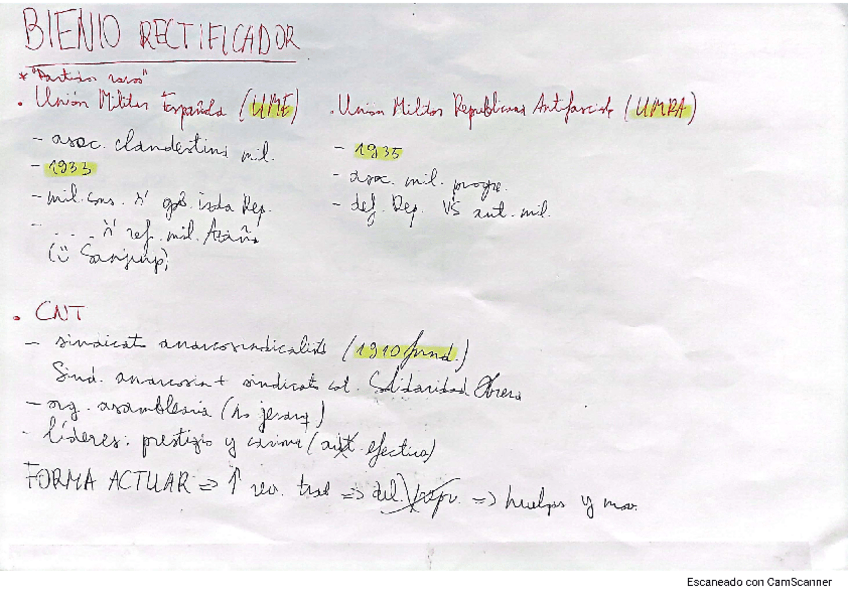 BIENIO RECTIFICADOR
* "Partidos raros"
• Unión Militar Española (UME)
- asoc. clandestina mil.
- 1933
- mil. cons. gob. izda Rep.
- .... ref. mil. Azaña
• Unión Militar Republicana Antifascista (UMRA)
- 1935
- asoc. mil. progre.
- def. Rep. VS aut. mil.
• CNT
- sindicato anarcosindicalista (1910 fund.)
Sind. anarcosin + sindicato cat. Solidaridad Obrera
- org. asamblearia (no jerarq)
- líderes: prestigio y carisma (aut. efectiva)
FORMA ACTUAR => ↑ rev. => => huelgas y mov.
Escaneado con CamScanner